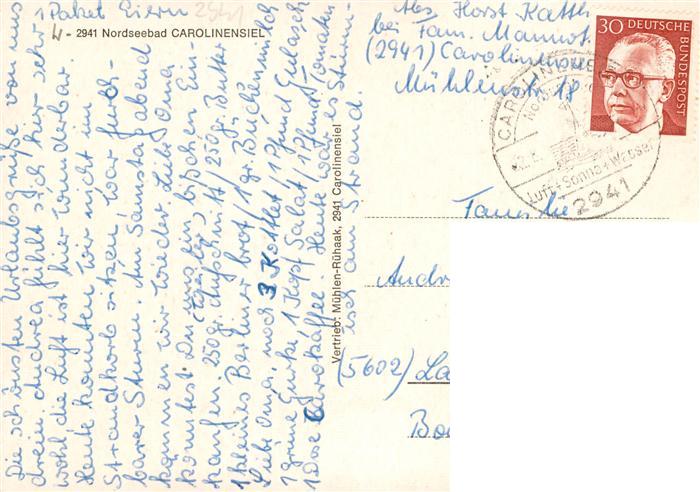 1 Paket Eiern
4 - 2941 Nordseebad CAROLINENSIEL
Die schönsten Urlaubsgrüße von uns
dreien. Andrea fühlt sich hier sehr
wohl, die Luft ist hier wunderbar.
Heute konnten wir nicht im
Strandkorb sitzen, war furcht-
barer Sturm. Am Samstag abend
kommen wir wieder. Lb. Oma
könntest Du uns ein bißchen Ein-
kaufen. 250 gr. Aufschnitt / 250 gr. Butter
1 kleines Berliner brot / 1 gr. Büchsenmilch
Lieb Oma, noch 3 Kottlet / 1 Pfund Gulasch
1 grüne Gurke, 1 Kopf Salat / 1 Pfund Tomaten
1 Dose Carokaffee. Heute war es Stürm-
isch am Strand.
Vertrieb: Mühlen-Rühaak, 2941 Carolinensiel
Abs. Horst Katth
bei Fam. Mannot
(2941) Carolinens
Mühlenstr. 18
30 DEUTSCHE BUNDESPOST
CAROLINENSIE
Luft + Sonne + Wasser
2941
Familie
Andr
(5602) La
Bo